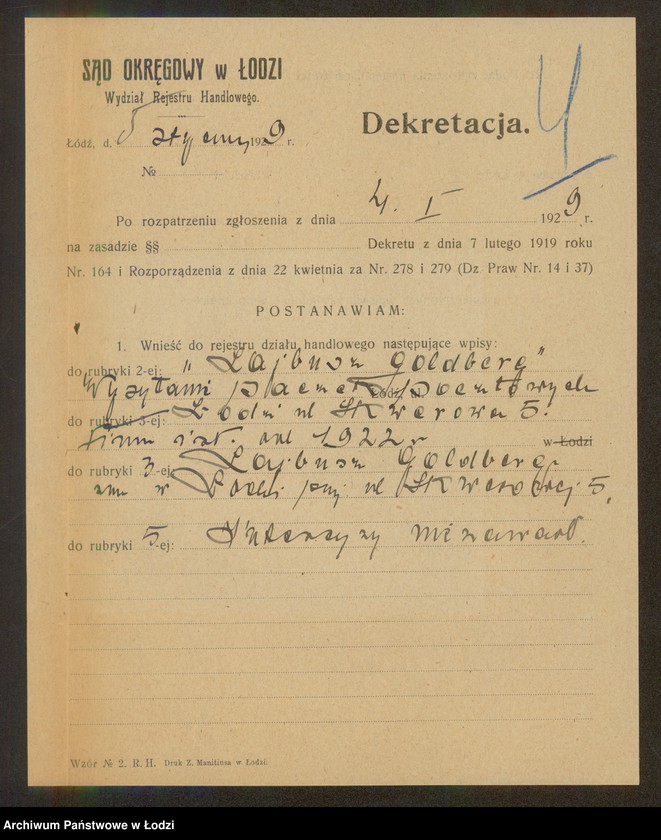 SĄD OKRĘGOWY w ŁODZI
Wydział Rejestru Handlowego.
Łódź, d. 5 stycznia 1929 r.
№
Dekretacja.
4
Po rozpatrzeniu zgłoszenia z dnia 4. I 1929 r.
na zasadzie §§ Dekretu z dnia 7 lutego 1919 roku
Nr. 164 i Rozporządzenia z dnia 22 kwietnia za Nr. 278 i 279 (Dz Praw Nr. 14 i 37)
POSTANAWIAM:
1. Wnieść do rejestru działu handlowego następujące wpisy:
do rubryki 2-ej: "Łajbusz Goldberg"
Wysyłanie paczek pocztowych
do rubryki 3-ej: Łodzi ul Skwerowa 5.
Firma ist. od 1922 r w Łodzi
do rubryki 3-ej Łajbusz Goldberg,
zam w Łodzi przy ul Skwerowej 5,
do rubryki 5-ej: Intercyzy nie zawarł.
Wzór № 2. R. H. Druk Z. Manitiusa w Łodzi.
Archiwum Państwowe w Łodzi